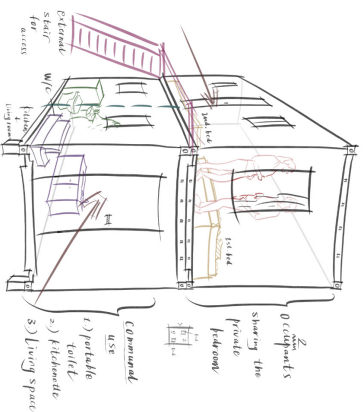 External
stair
for
access
W/C
Kitchen
+
living room
2nd. bed
1st bed
2 main
Occupants
sharing the
private
bedroom
communal
use
1) portable
toilet
2) kitchenette
3) living space